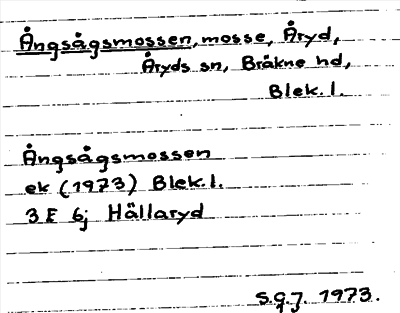 Ångsågsmossen, mosse, Åryd,
Åryds sn, Bräkne hd,
Blek. l.
Ångsågsmossen
ek (1973) Blek. l.
3 E 6j Hällaryd
S.G.J. 1973.